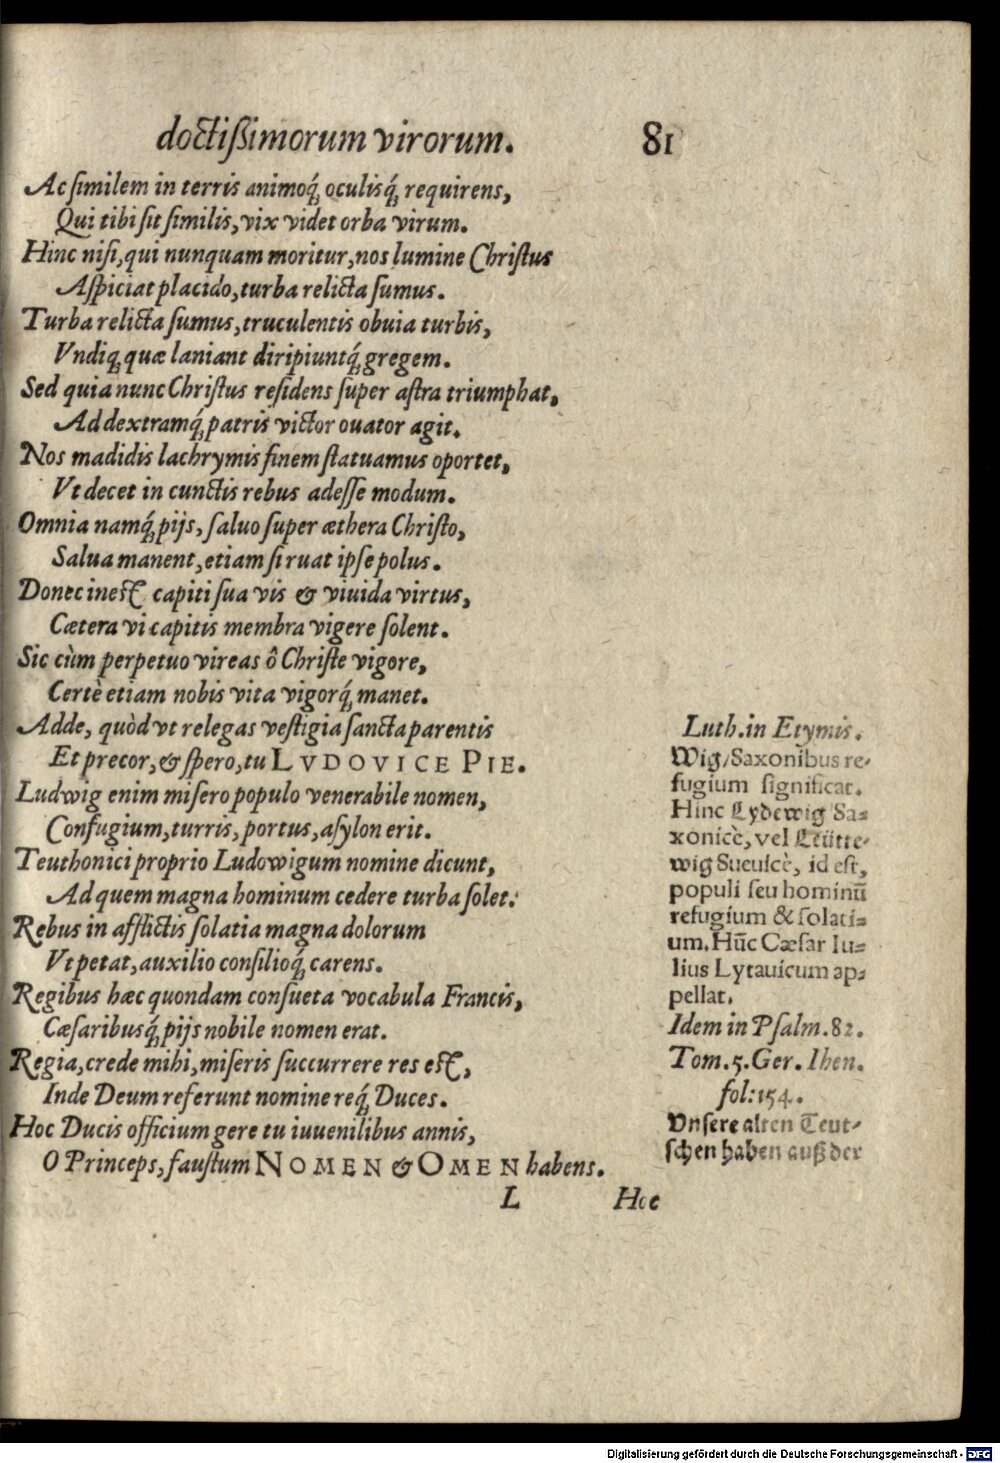 doctißimorum virorum. 81
Ac ſimilem in terris animoq́; oculisq́; requirens,
Qui tibi ſit ſimilis, vix videt orba virum.
Hinc niſi, qui nunquam moritur, nos lumine Chriſtus
Aſpiciat placido, turba relicta ſumus.
Turba relicta ſumus, truculentis obuia turbis,
Vndiq; quæ laniant diripiuntq́; gregem.
Sed quia nunc Chriſtus reſidens ſuper aſtra triumphat,
Ad dextramq́; patris victor ouator agit.
Nos madidis lachrymis finem ſtatuamus oportet,
Vt decet in cunctis rebus adeſſe modum.
Omnia namq́; pijs, ſaluo ſuper æthera Chriſto,
Salua manent, etiam ſi ruat ipſe polus.
Donec ineſt capiti ſua vis & viuida virtus,
Cætera vi capitis membra vigere ſolent.
Sic cùm perpetuo vireas ô Chriſte vigore,
Certè etiam nobis vita vigorq́; manet.
Adde, quòd vt relegas veſtigia ſancta parentis
Et precor, & ſpero, tu LVDOVICE PIE.
Ludwig enim miſero populo venerabile nomen,
Confugium, turris, portus, aſylon erit.
Teuthonici proprio Ludowigum nomine dicunt,
Ad quem magna hominum cedere turba ſolet:
Rebus in afflictis ſolatia magna dolorum
Vt petat, auxilio conſilioq́; carens.
Regibus hæc quondam conſueta vocabula Francis,
Cæſaribusq́; pijs nobile nomen erat.
Regia, crede mihi, miſeris ſuccurrere res eſt,
Inde Deum referunt nomine req́; Duces.
Hoc Ducis officium gere tu iuuenilibus annis,
O Princeps, fauſtum NOMEN & OMEN habens.
L Hoc
Luth. in Etymis.
Wig/Saxonibus re-
fugium ſignificat.
Hinc Lydewig Sa=
xonicè, vel Leütte-
wig Sueuicè, id eſt,
populi ſeu hominū
refugium & ſolati=
um. Hūc Cæſar Iu=
lius Lytauicum ap=
pellat.
Idem in Pſalm. 82.
Tom. 5. Ger. Ihen.
fol: 154.
Vnſere alten Teut-
ſchen haben auß der
Digitalisierung gefördert durch die Deutsche Forschungsgemeinschaft - DFG